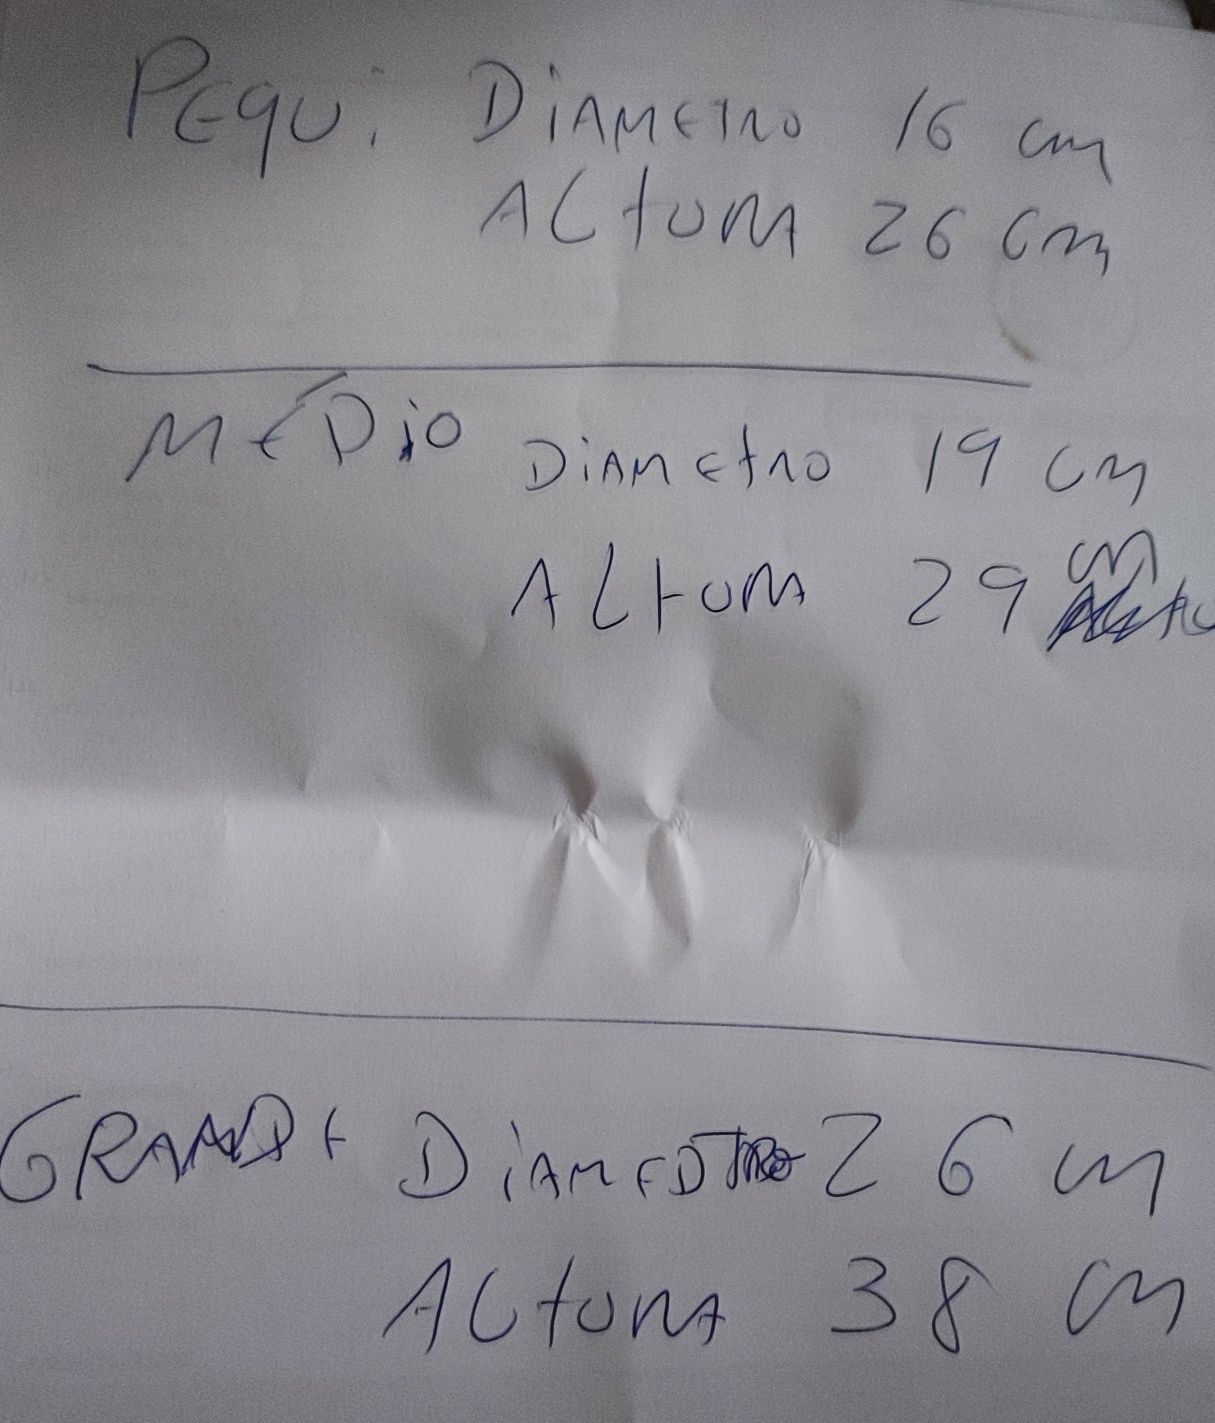 PEQU. DIAMETRO 16 cm
ALTURA 26 cm
MÉDIO DIAMETRO 19 cm
ALTURA 29 cm
GRANDE DIAMEDTRO 26 cm
ALTURA 38 cm